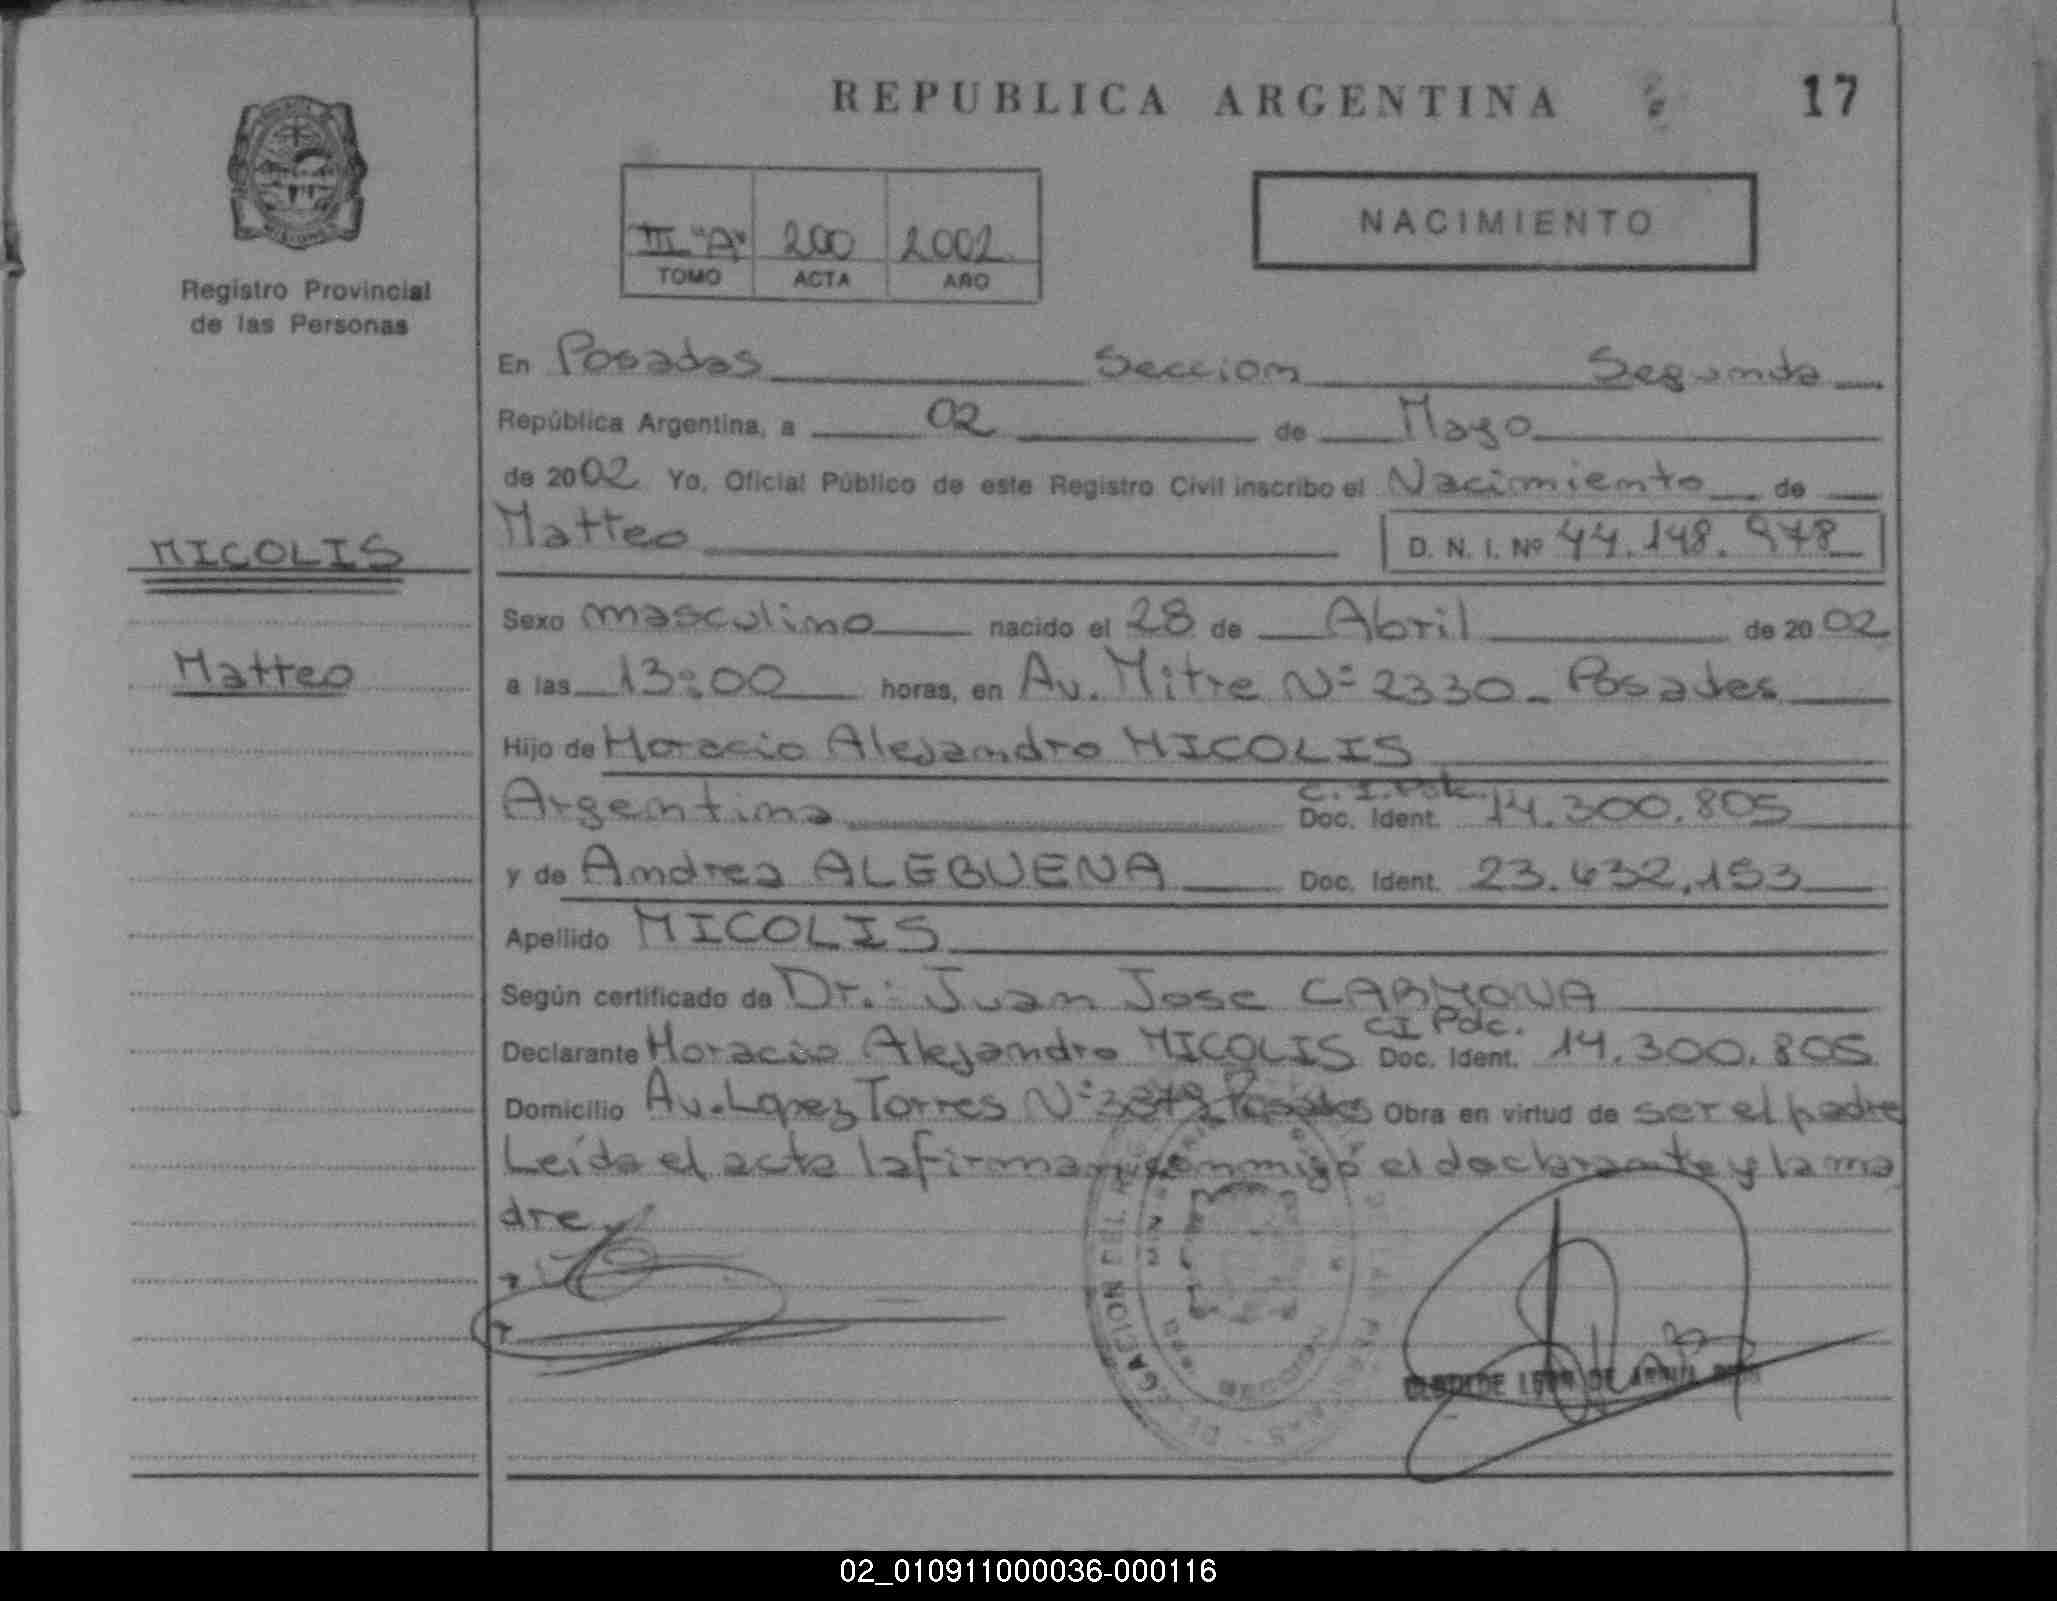 REPUBLICA ARGENTINA
17
III "A" 200 2002
TOMO ACTA AÑO
NACIMIENTO
Registro Provincial
de las Personas
MICOLIS
Matteo
En Posadas Seccion Segunda
República Argentina, a 02 de Mayo
de 2002 Yo, Oficial Público de este Registro Civil inscribo el Nacimiento de
Matteo D. N. I. Nº 44.148.978
Sexo masculino nacido el 28 de Abril de 2002
a las 13:00 horas, en Av. Mitre Nº 2330 - Posadas
Hijo de Horacio Alejandro MICOLIS
Argentina C. I. Pdc. Doc. Ident. 14.300.805
y de Andrea ALEGUENA Doc. Ident. 23.632.153
Apellido MICOLIS
Según certificado de Dr.: Juan Jose CARMONA
Declarante Horacio Alejandro MICOLIS CI Pdc. Doc. Ident. 14.300.805
Domicilio Av. Lopez Torres Nº Posadas Obra en virtud de ser el padre
Leída el acta la firman conmigo el declarante y la ma
dre
02_010911000036-000116